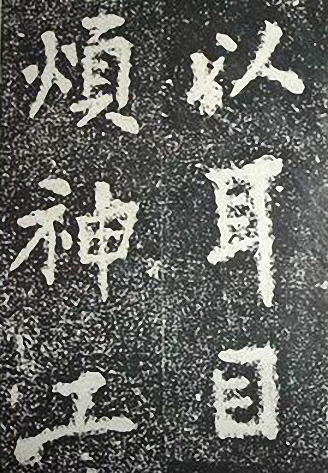 以耳目
煩神工